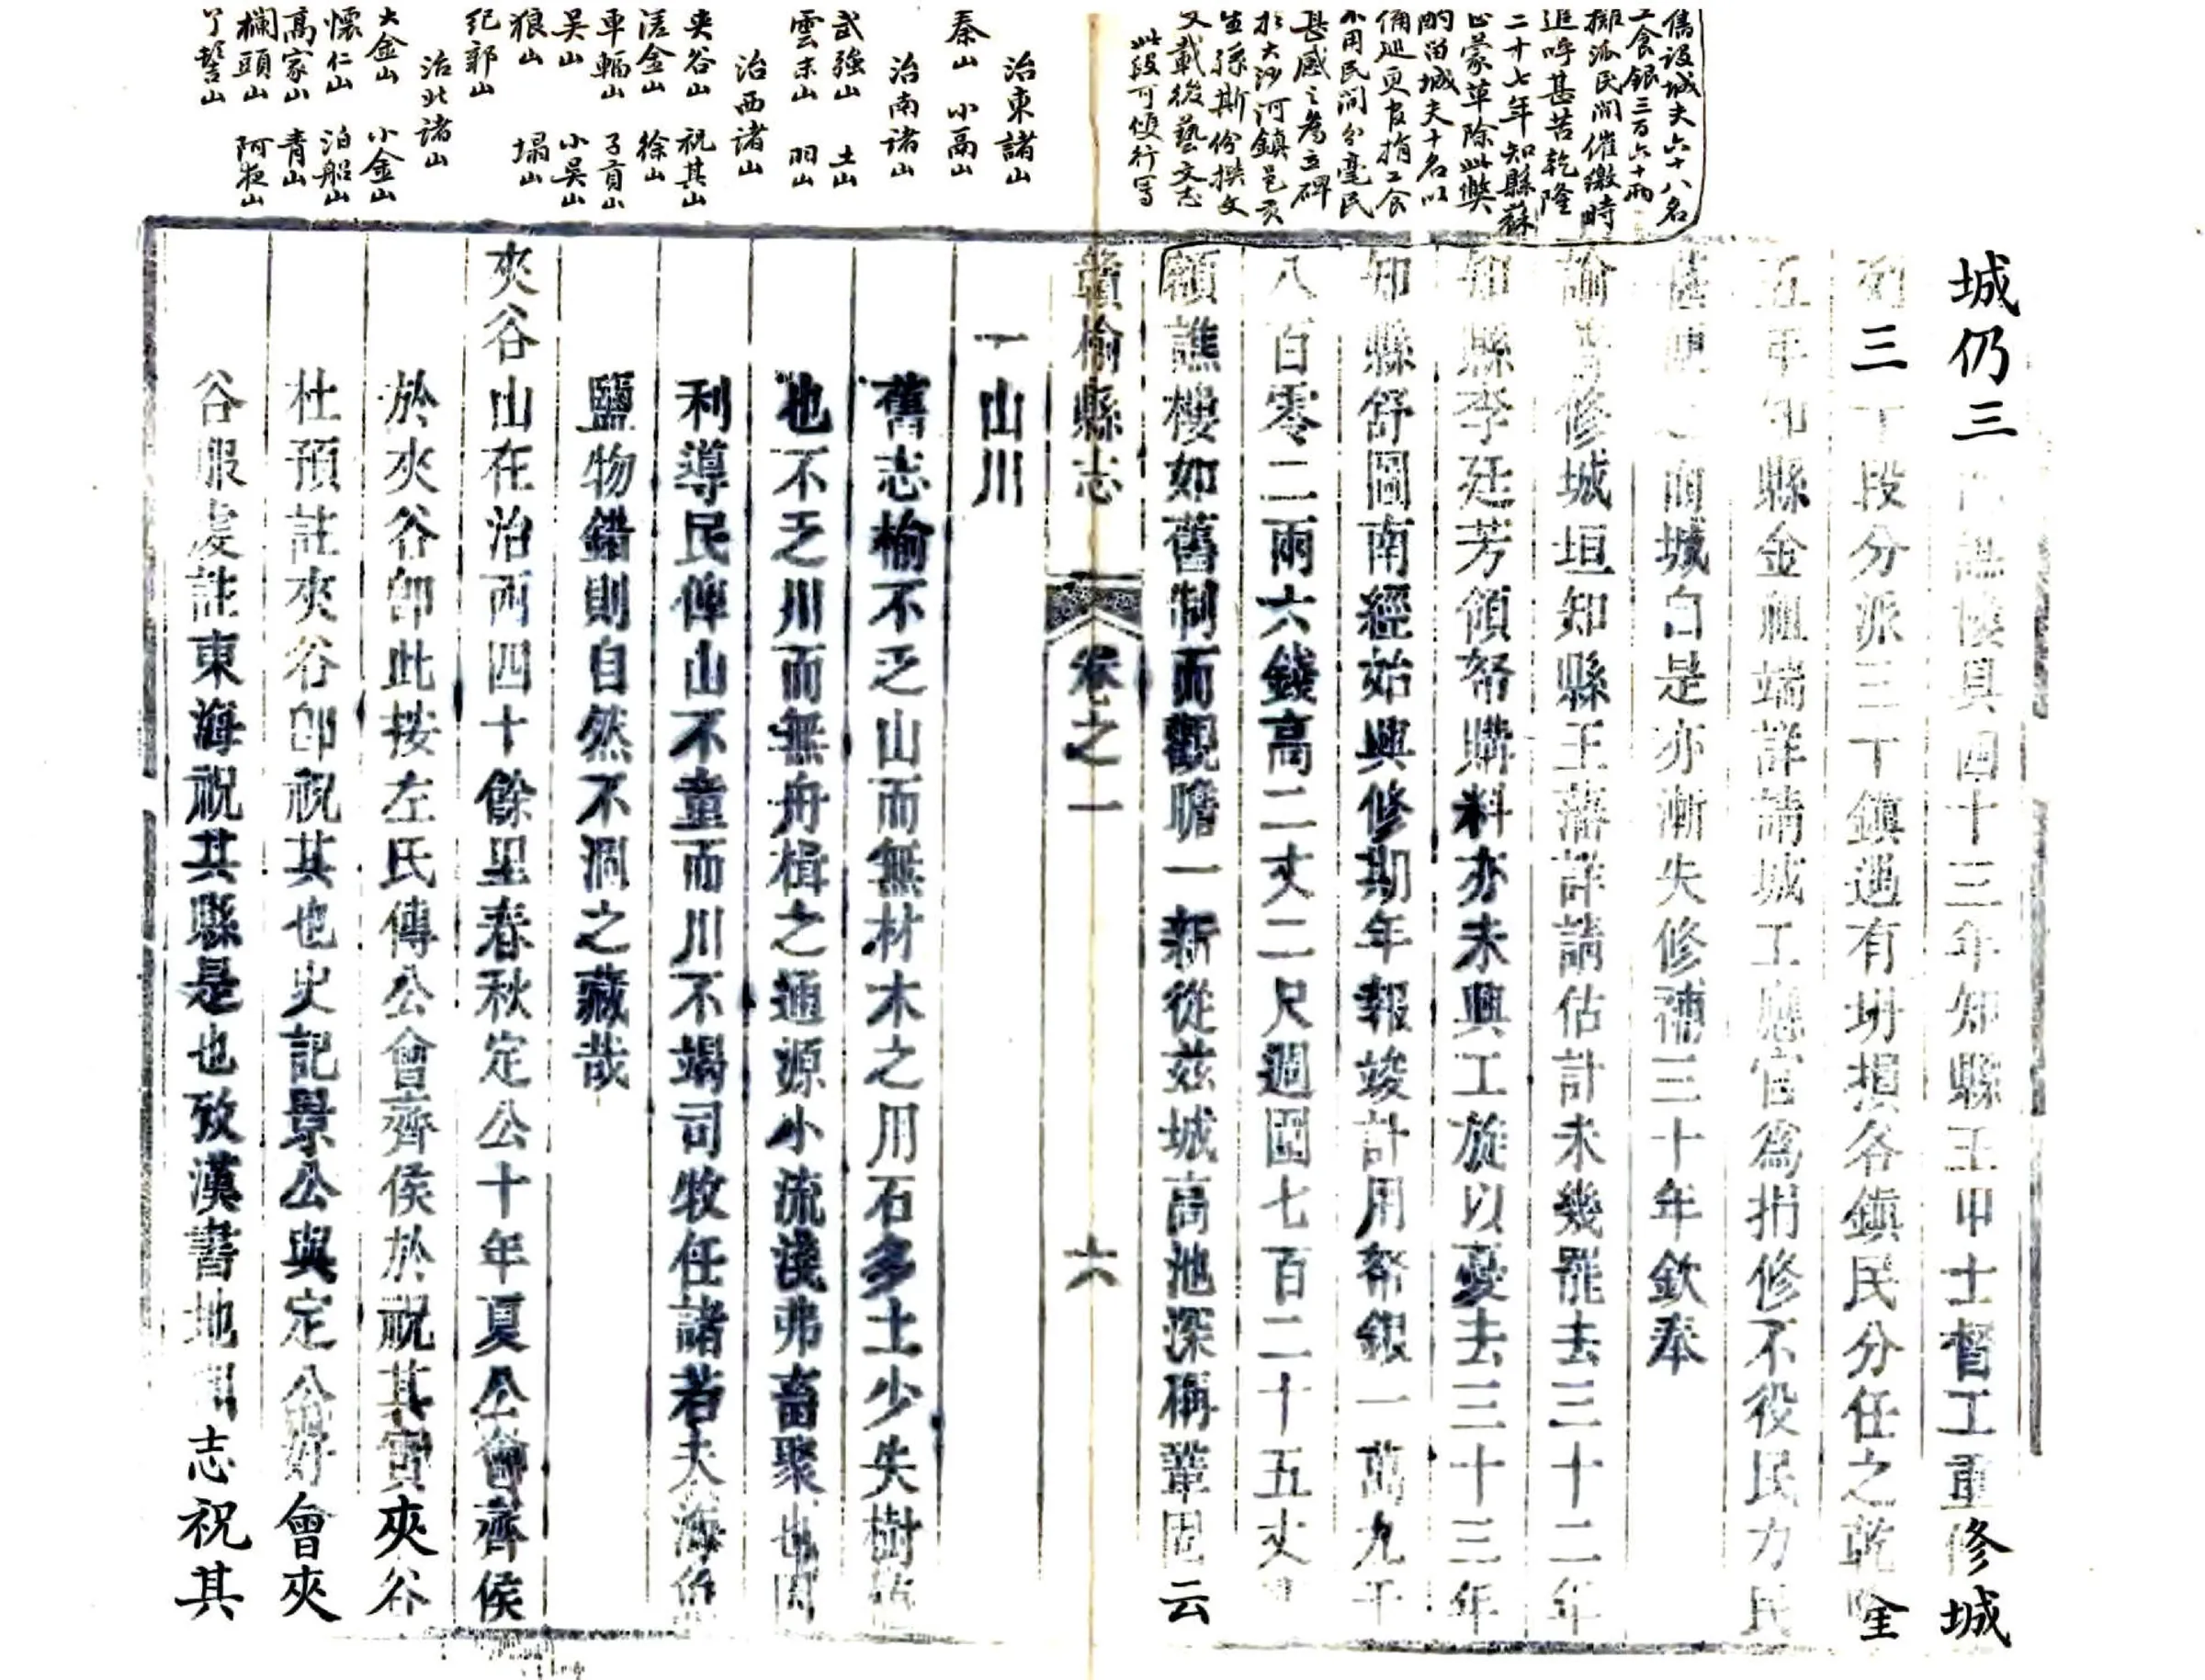 舊設城夫六十八名
工食銀三百六十兩
攤派民間催繳時
追呼甚苦乾隆
二十七年知縣蘇
以蒙革除此獘
酌留城夫十名以
備巡更官捐工食
不用民間分毫民
甚感之爲立碑
於大沙河鎮邑貢
生孫斯份撰文
文載後藝文志
此段可傻行寫
城仍三 樓具四十三年知縣王甲士督工重修城
列三丁段分派三丁鎮遇有坍損各鎮民分任之乾隆
五年知縣金祖端詳請城工應官爲捐修不役民力民
而城自是亦漸失修禮三十年欽奉
諭 修城垣知縣王藩詳請估計未幾罷去三十二年
知縣李廷芳領帑購料亦未興工旋以憂去三十三年
知縣舒圖南經始興修期年報竣計用帑銀一萬九千
八百零二兩六錢高二丈二尺週圍七百二十五丈
頓譙樓如舊制而觀瞻一新從茲城高池深稱鞏固云
贛榆縣志 卷之一 六
治東諸山
秦山 小高山
治南諸山
武強山 土山
雲末山 羽山
治西諸山
夾谷山 祝其山
浯金山 徐山
車輻山 子貢山
吳山 小吳山
狼山 塌山
紀鄣山
治北諸山
大金山 小金山
懷仁山 泊船山
高家山 青山
欄頭山 阿夜山
丫髻山
一山川
舊志榆不乏山而無材木之用石多土少失樹
也不乏川而無舟楫之通源小流淺弗畜聚也因
利導民俾山不童而川不竭司牧任諸若夫海
鹽物錯則自然不涸之藏哉
夾谷山在治西四十餘里春秋定公十年夏公會齊侯
於夾谷卽此按左氏傳公會齊侯於祝其實夾谷
杜預註夾谷卽祝其也史記景公與定公好會夾
谷服虔註東海祝其縣是也攷漢書地 志祝其